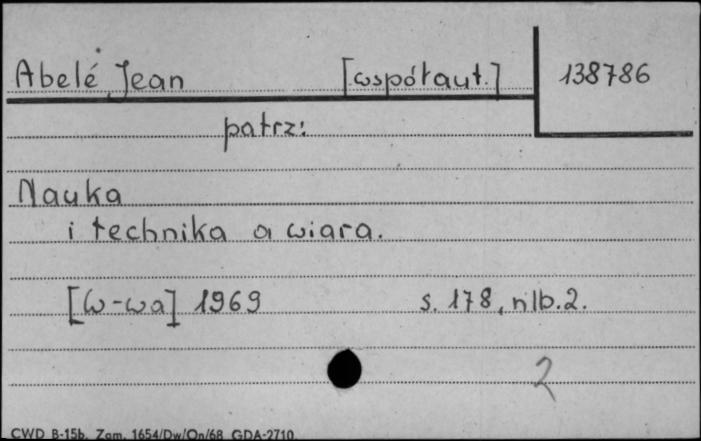 Abelé Jean [współaut.] 138786
patrz:
Nauka
i technika a wiara.
[W-wa] 1969 s. 178, nlb.2.
2
CWD B-15b. Zam. 1654/Dw/On/68 GDA-2710